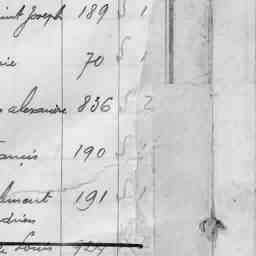 int Joseph 189 S 1
ie 70 S 1
s alexandre 836 S 2
ançois 190 S 1
lement 191 S 1
drien
Louis